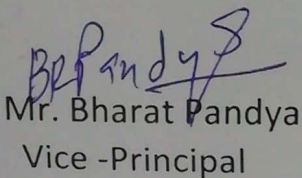 BRPandya
Mr. Bharat Pandya
Vice -Principal